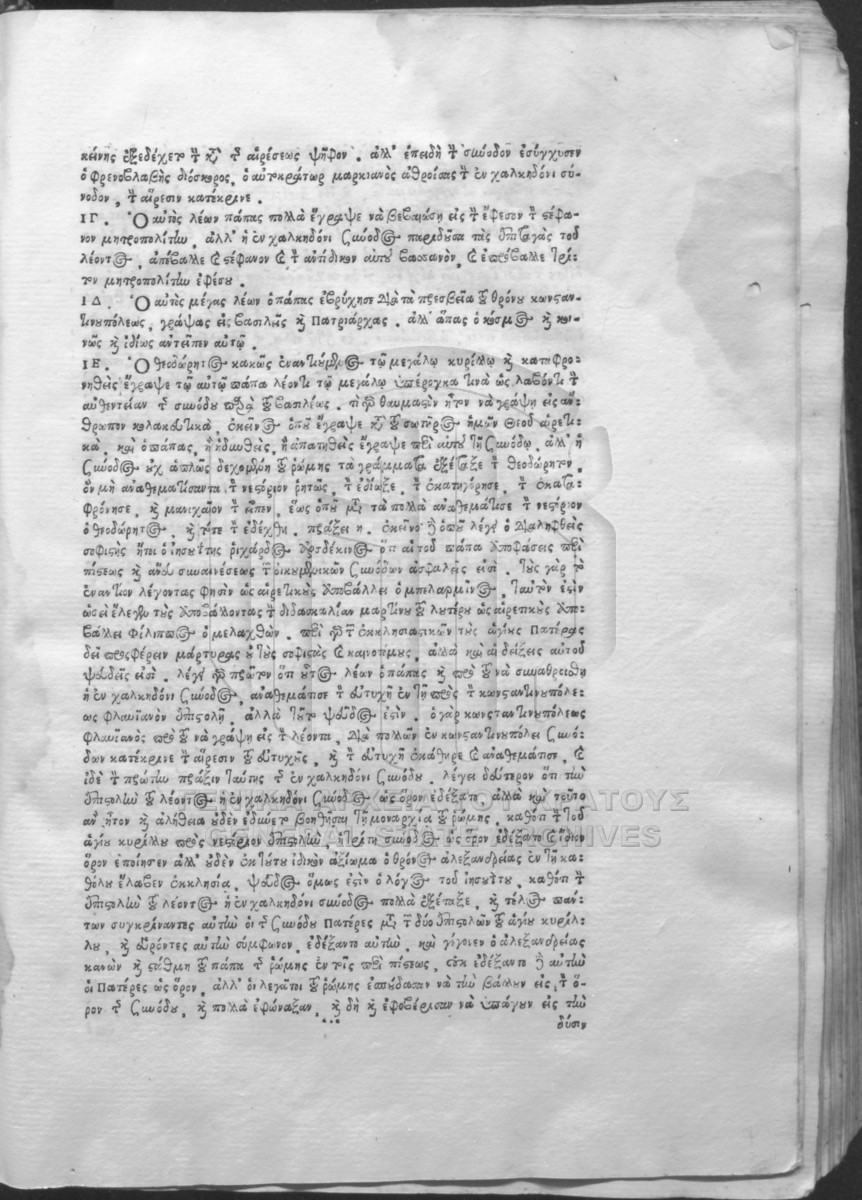 κείνης ἐξεδέχετο τὴν κατὰ τῆς αἱρέσεως ψῆφον. ἀλλ' ἐπειδὴ τὴν σύνοδον ἐσύγχυσεν
ὁ φρενοβλαβὴς διόσκορος, ὁ αὐτοκράτωρ μαρκιανὸς ἀθροίσας τὴν ἐν χαλκηδόνι σύ-
νοδον, τὴν αἵρεσιν κατέκρινε.
ΙΓ. Ὁ αὐτὸς λέων πάπας πολλὰ ἔγραψε νὰ βεβαιώση εἰς τὴν ἔφεσον τὸν στέφα-
νον μητροπολίτην, ἀλλ' ἡ ἐν χαλκηδόνι σύνοδος παριδοῦσα τὰς ἐπιταγὰς τοῦ
λέοντος, ἀπέβαλλε καὶ στέφανον καὶ τὸν ἀντίδικον αὐτοῦ βασιανὸν, καὶ ἐπρόβαλλε τρί-
τον μητροπολίτην ἐφέσου.
ΙΔ. Ὁ αὐτὸς μέγας λέων ὁ πάπας ἐβρύχησε διὰ τὰ πρεσβεῖα τοῦ θρόνου κωνσταν-
τινουπόλεως, γράψας εἰς βασιλεῖς καὶ Πατριάρχας. ἀλλ' ἅπας ὁ κόσμος καὶ κοι-
νῶς καὶ ἰδίως ἀντεῖπεν αὐτῷ.
ΙΕ. Ὁ θεοδώρητος κακῶς ἐναντιούμενος τῷ μεγάλῳ κυρίλλῳ καὶ καταφρο-
νηθεὶς ἔγραψε τῷ αὐτῷ πάπα λέοντι τῷ μεγάλῳ ὑπέρογκα τινὰ ὡς λαβόντι τὴν
αὐθεντείαν τῆς συνόδου παρὰ τοῦ βασιλέως. τί γὰρ θαυμαστὸν ἦτον νὰ γράψη εἰς ἄν-
θρωπον κολακευτικὰ, ἐκεῖνος ὁποῦ ἔγραψε κατὰ τοῦ σωτῆρος ἡμῶν Θεοῦ αἱρετι-
κὰ, καὶ ὁ πάπας, ἢ ἡδυνθεὶς, ἢ ἀπατηθεὶς ἔγραψε περὶ αὐτοῦ τῇ συνόδῳ, ἀλλ' ἡ
σύνοδος οὐχ ἁπλῶς δεχομένη τοῦ ῥώμης τὰ γράμματα ἐξέταξε τὸν θεοδώρητον,
ὃν μὴ ἀναθεματίσαντα τὸν νεστόριον ῥητῶς, τὸν ἐδίωξε, τὸν ἐκατηγόρησε, τὸν ἐκατα-
φρόνησε, καὶ μανιχαῖον τὸν εἶπεν, ἕως ὁποῦ μετὰ τὰ πολλὰ ἀναθεμάτισε τὸν νεστόριον
ὁ θεοδώρητος, καὶ τότε τὸν ἐδέχθη. πράξει η. ἐκεῖνο δὲ ὁποῦ λέγει ὁ διαληφθεὶς
σοφιστὴς ἤτοι ὁ ἰησουΐτης ῥιχάρδος ὅτι αἱ τοῦ πάπα ἀποφάσεις περὶ
πίστεως καὶ ἄνευ συναινέσεως τῶν οἰκουμενικῶν συνόδων ἀσφαλεῖς εἰσί. τοὺς γὰρ τὸ
ἐναντίον λέγοντας φησὶν ὡς αἱρετικοὺς ἀποβάλλει ὁ μπελαρμῖνος, ταὐτὸν ἐστὶν
ὡσεὶ ἔλεγον τοὺς ἀποβάλλοντας τὴν διδασκαλίαν μαρτίνου τοῦ λουτέρου ὡς αἱρετικοὺς ἀπο-
βάλλει Φίλιππος ὁ μελαχθών. περὶ γὰρ τῶν ἐκκλησιαστικῶν τοὺς ἁγίους Πατέρας
δεῖ προσφέρειν μάρτυρας οὐ τοὺς σοφιστὰς καὶ καινοτόμους, ἀλλὰ καὶ αἱ δείξεις αὐτοῦ
ψευδεῖς εἰσί. λέγει γὰρ πρῶτον ὅτι οὗτος λέων ὁ πάπας καὶ πρὸ τοῦ νὰ συναθροισθῆ
ἡ ἐν χαλκηδόνι σύνοδος, ἀναθεμάτισε τὸν εὐτυχῆ ἐν τῇ πρὸς τὸν κωνσταντινουπόλε-
ως φλαυϊανὸν ἐπιστολῇ, ἀλλὰ τοῦτο ψεῦδος ἐστὶν. ὁ γὰρ κωνσταντινουπόλεως
φλαυϊανὸς πρὸ τοῦ νὰ γράψη εἰς τὸν λέοντα, διὰ πολλῶν ἐν κωνσταντινουπόλει συνό-
δων κατέκρινε τὴν αἵρεσιν τοῦ εὐτυχοῦς, καὶ τὸν εὐτυχῆ ἐκάθηρε καὶ ἀναθεμάτισε, καὶ
ἰδὲ τὴν πρώτην πρᾶξιν ταύτης τῆς ἐν χαλκηδόνι συνόδου. λέγει δεύτερον ὅτι τὴν
ἐπιστολὴν τοῦ λέοντος ἡ ἐν χαλκηδόνι σύνοδος ὡς ὅρον ἐδέξατο ἀλλὰ καὶ τοῦτο
ἂν ἦτον καὶ ἀλήθεια οὐδὲν ἐδύνετο βοηθῆσαι τῇ μοναρχία τοῦ ῥώμης, καθότι τὴν τοῦ
ἁγίου κυρίλλου πρὸς νεστόριον ἐπιστολὴν, ἡ τρίτη σύνοδος ὡς ὅρον ἐδέξαντο καὶ ἴδιον
ὅρον ἐποίησεν ἀλλ' οὐδὲν ἐκ τούτου ἰδικὸν ἀξίωμα ὁ θρόνος ἀλεξανδρείας ἐν τῇ κα-
θόλου ἔλαβεν ἐκκλησία, ψεῦδος ὅμως ἐστὶν ὁ λόγος τοῦ ἰησουΐτου, καθότι τὴν
ἐπιστολὴν τοῦ λέοντος ἡ ἐν χαλκηδόνι σύνοδος πολλὰ ἐξέταξε, καὶ τέλος πάν-
των συγκρίναντες αὐτὴν οἱ τῆς συνόδου Πατέρες μετὰ τῶν δύο ἐπιστολῶν τοῦ ἁγίου κυρίλ-
λου, καὶ εὑρόντες αὐτὴν σύμφωνον, ἐδέξαντο αὐτὴν, καὶ γέγονεν ὁ ἀλεξανδρείας
κανὼν καὶ στάθμη τοῦ πάπα τῆς ῥώμης ἐν τοῖς περὶ πίστεως, οὐκ ἐδέξαντο δὲ αὐτὴν
οἱ Πατέρες ὡς ὅρον, ἀλλ' οἱ λεγάτοι τοῦ ῥώμης ἐσπούδασαν νὰ τὴν βάλουν εἰς τὸν ὅ-
ρον τῆς συνόδου, καὶ πολλὰ ἐφώναξαν, καὶ δὴ καὶ ἐφοβέρισαν νὰ ὑπάγουν εἰς τὴν
δύσιν
ΓΕΝΙΚΑ ΑΡΧΕΙΑ ΤΟΥ ΚΡΑΤΟΥΣ
GENERAL STATE ARCHIVES